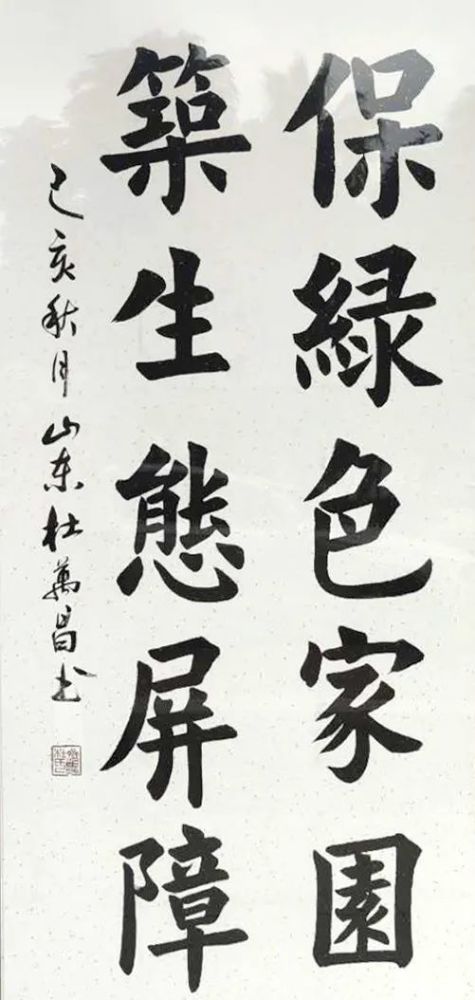 保緑色家園
築生態屏障
己亥秋月山东杜萬昌书